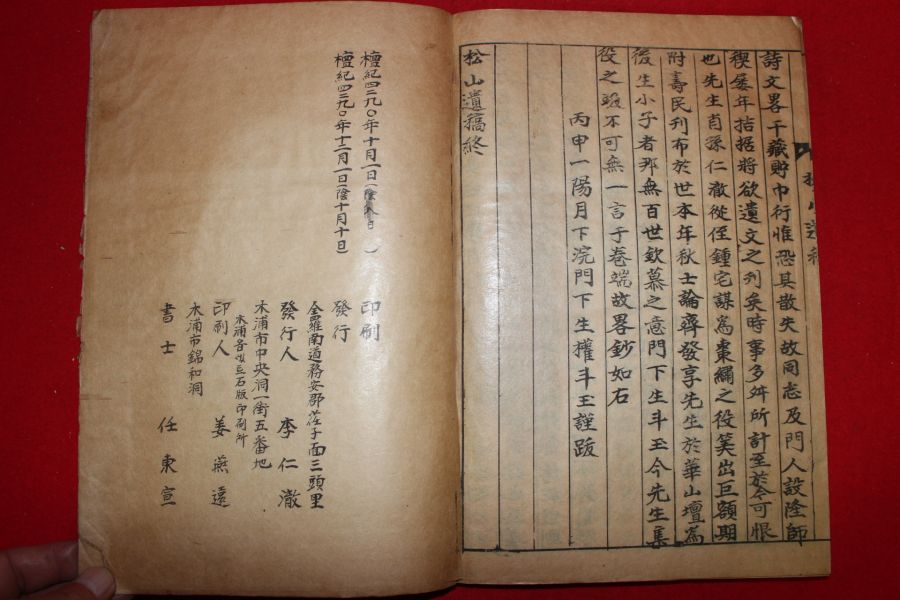 詩文畧干藏貯巾衍惟恐其散失故同志及門人設隆師
稧屡年拮据將欲遺文之刋矣時事多舛所計至於今可恨
也先生肖孫仁澈從侄鍾宅謀爲棗繡之役笑出巨額期
附壽民刋布於世本年秋士論齊發享先生於華山壇爲
後生小子者那無百世欽慕之意門下生斗玉今先生集
役之
不可無一言于卷端故畧鈔如右
丙申一陽月下浣門下生權斗玉謹跋
松山遺稿終
檀紀四二九〇年十月一日(陰
檀紀四二九〇年十二月一日(陰十月十日)
印刷
發行
全羅南道務安郡荏子面三頭里
發行人 李仁澈
木浦市中央洞一街五番地
石版印刷所
印刷人 姜燕遠
木浦市錦和洞
書士 任東宣